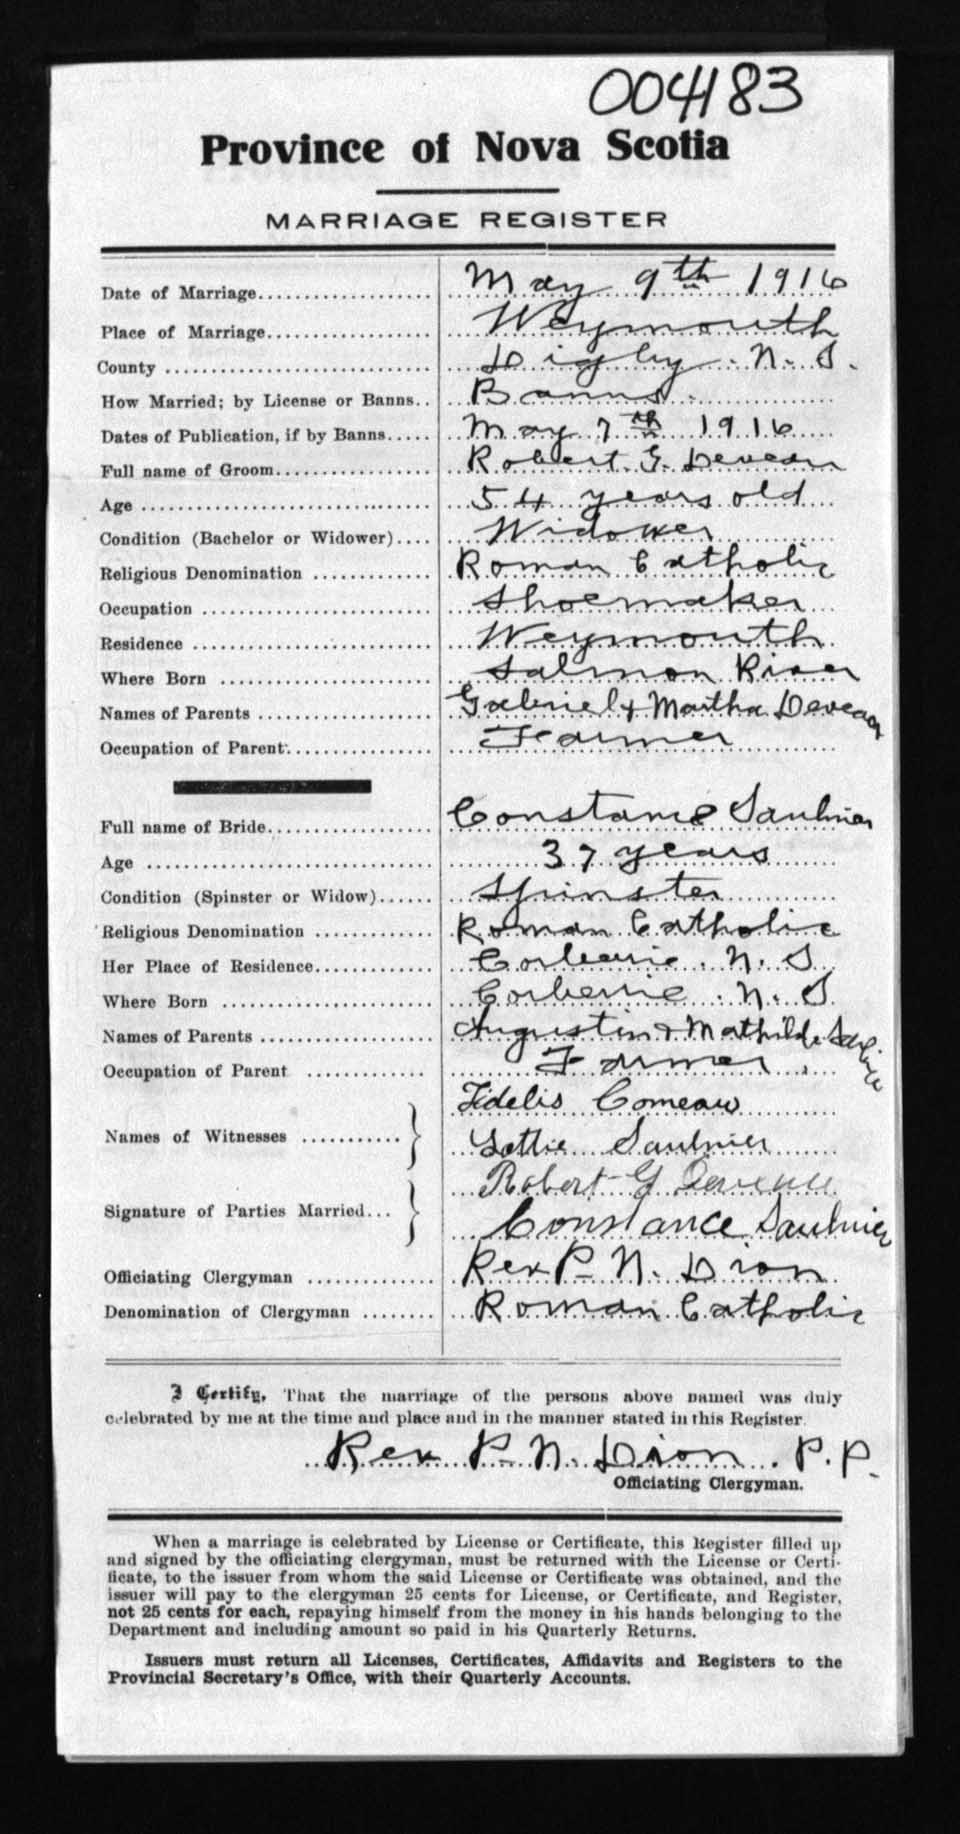 004183
Province of Nova Scotia
MARRIAGE REGISTER
Date of Marriage.................... May 9th 1916
Place of Marriage................... Weymouth
County .............................. Digby. N. S.
How Married; by License or Banns.. Banns.
Dates of Publication, if by Banns..... May 7th 1916
Full name of Groom.................. Robert G. Deveau
Age ................................. 54 years old
Condition (Bachelor or Widower).... Widower
Religious Denomination ............. Roman Catholic
Occupation .......................... Shoemaker
Residence ........................... Weymouth
Where Born ........................ Salmon River
Names of Parents ................... Gabriel & Martha Deveau
Occupation of Parent................. Farmer
Full name of Bride................... Constance Saulnier
Age ................................. 37 years
Condition (Spinster or Widow)...... Spinster
Religious Denomination ............. Roman Catholic
Her Place of Residence.............. Corberrie. N. S
Where Born ........................ Corberrie. N. S
Names of Parents ................... Augustin & Mathilde
Occupation of Parent ............. Farmer
Fidelis Comeau
Names of Witnesses ........... } Lottie Saulnier
Robert G Deveau
Signature of Parties Married... } Constance Saulnier
Officiating Clergyman .............. Rev P- N. Dion
Denomination of Clergyman ........ Roman Catholic
I Certify, That the marriage of the persons above named was duly
celebrated by me at the time and place and in the manner stated in this Register.
Rev P- N. Dion. P. P.
Officiating Clergyman.
When a marriage is celebrated by License or Certificate, this Register filled up
and signed by the officiating clergyman, must be returned with the License or Certi-
ficate, to the issuer from whom the said License or Certificate was obtained, and the
issuer will pay to the clergyman 25 cents for License, or Certificate, and Register,
not 25 cents for each, repaying himself from the money in his hands belonging to the
Department and including amount so paid in his Quarterly Returns.
Issuers must return all Licenses, Certificates, Affidavits and Registers to the
Provincial Secretary's Office, with their Quarterly Accounts.